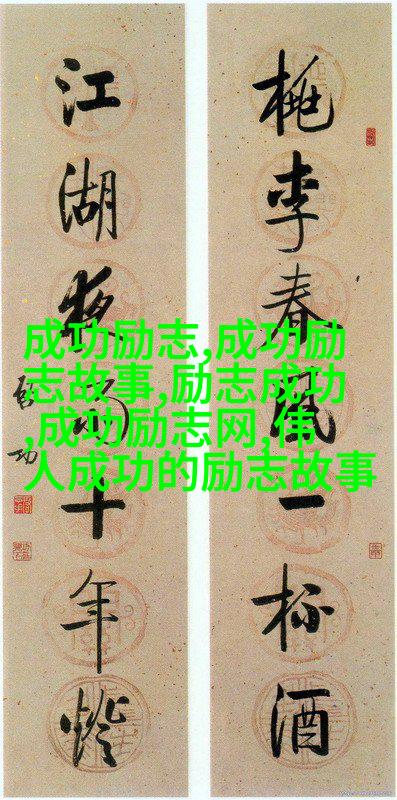 桃李春風一杯酒
江湖夜雨十年燈
啓功
成功励志,成功励
志故事,励志成功
,成功励志网,伟
人成功的励志故事